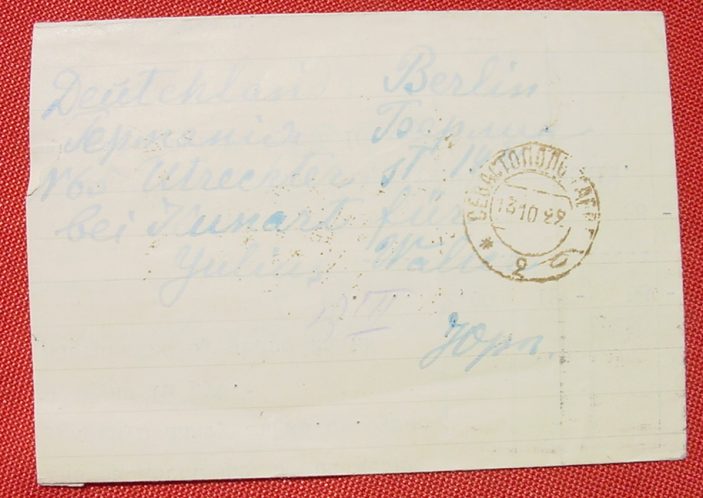 Deutchland Berlin
Германия Берлин
N 65 Utrechter st 14
bei Kunart für
Yulius Walter
СЕВАСТОПОЛЬ
13 10 29